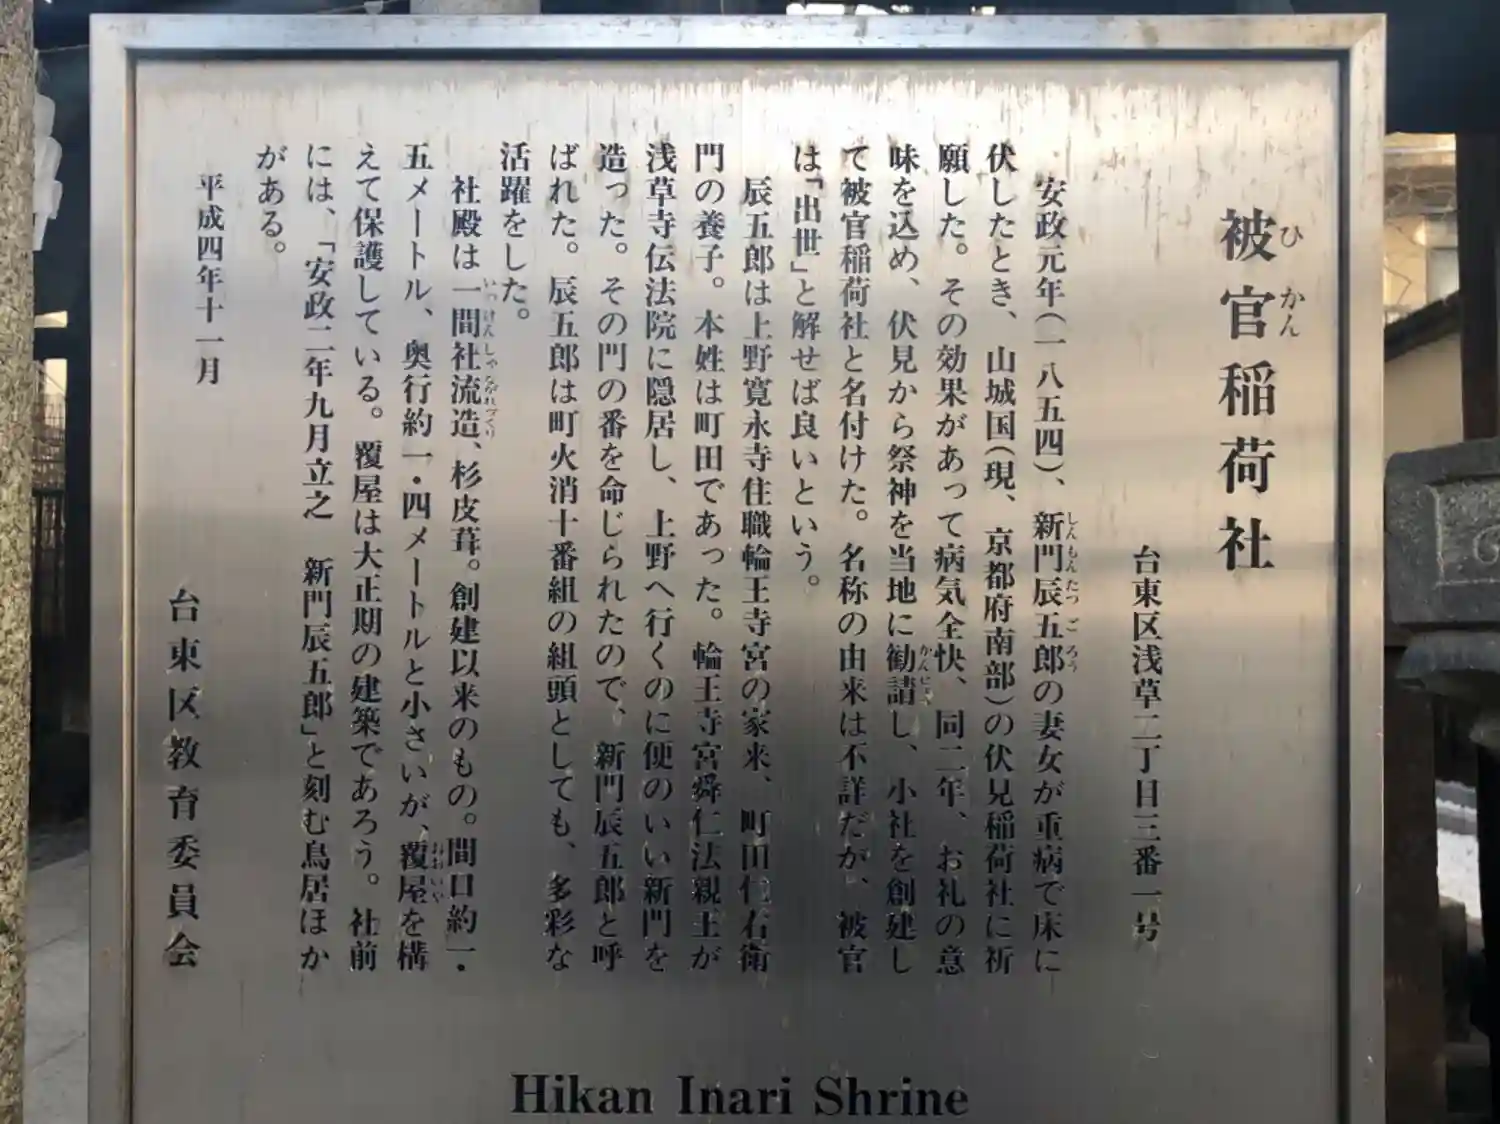 被官稲荷社
台東区浅草二丁目三番一号
安政元年(一八五四)、新門辰五郎の妻女が重病で床に
伏したとき、山城国(現、京都府南部)の伏見稲荷社に祈
願した。その効果があって病気全快、同二年、お礼の意
味を込め、伏見から祭神を当地に勧請し、小社を創建し
て被官稲荷社と名付けた。名称の由来は不詳だが、被官
は「出世」と解せば良いという。
辰五郎は上野寛永寺住職輪王寺宮の家来、町田仁右衛
門の養子。本姓は町田であった。輪王寺宮舜仁法親王が
浅草寺伝法院に隠居し、上野へ行くのに便のいい新門を
造った。その門の番を命じられたので、新門辰五郎と呼
ばれた。辰五郎は町火消十番組の組頭としても、多彩な
活躍をした。
社殿は一間社流造、杉皮葺。創建以来のもの。間口約一・
五メートル、奥行約一・四メートルと小さいが、覆屋を構
えて保護している。覆屋は大正期の建築であろう。社前
には、「安政二年九月立之 新門辰五郎」と刻む鳥居ほか
がある。
平成四年十一月
台東区教育委員会
Hikan Inari Shrine